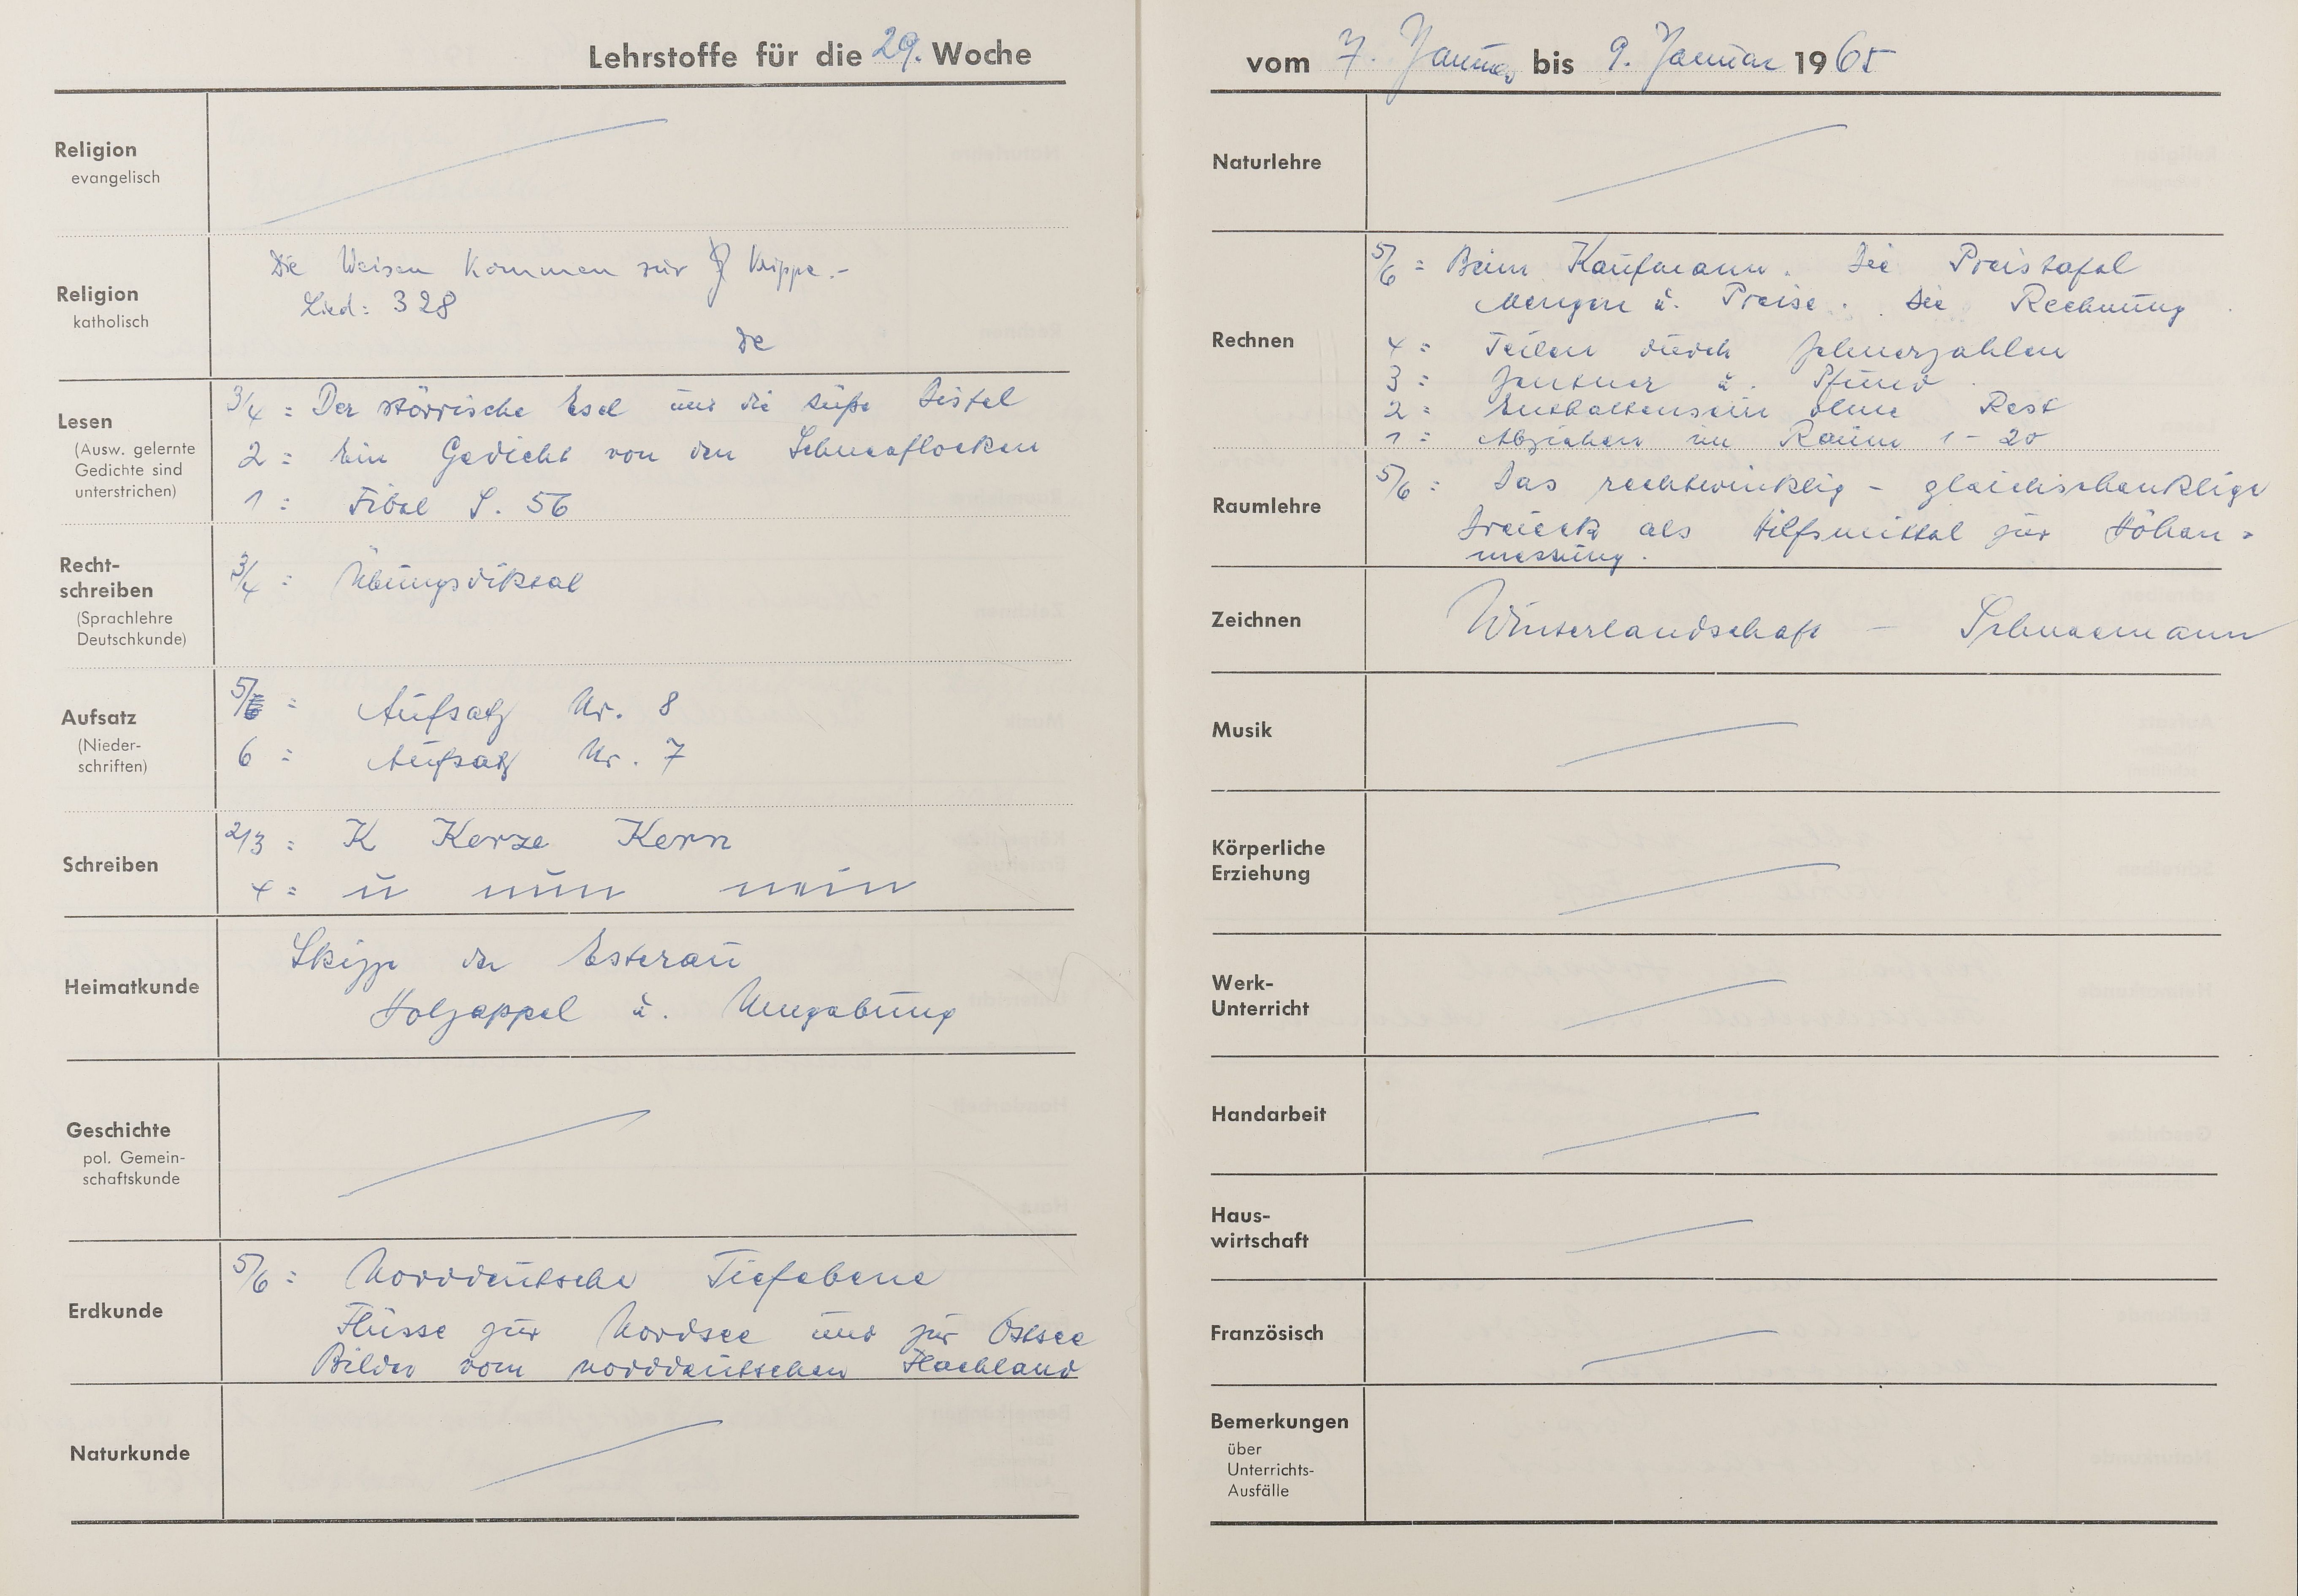 Lehrstoffe für die 29. Woche
Religion
evangelisch
Religion
katholisch
Die Weisen kommen zur Krippe.-
Lied: 328
De
Lesen
(Ausw. gelernte
Gedichte sind
unterstrichen)
3/4 = Der störrische Esel und die süße Distel
2 = Ein Gedicht von den Schneeflocken
1 = Fibel S. 56
Recht-
schreiben
(Sprachlehre
Deutschkunde)
3/4 = Übungsdiktat
Aufsatz
(Nieder-
schriften)
5/ = Aufsatz Nr. 8
6 = Aufsatz Nr. 7
Schreiben
2/3 = K Kerze Kern
4 = u nun nein
Heimatkunde
Skizze der Esterau
Holzappel u. Umgebung
Geschichte
pol. Gemein-
schaftskunde
Erdkunde
5/6 = Norddeutsche Tiefebene
Flüsse zur Nordsee und zur Ostsee
Bilder vom norddeutschen Flachland
Naturkunde
vom 7. Januar bis 9. Januar 1965
Naturlehre
Rechnen
5/6 = Beim Kaufmann. Die Preistafel
Mengen u. Preise. Die Rechnung
4 = Teilen durch Zehnerzahlen
3 = Zentner u. Pfund
2 = Enthaltensein ohne Rest
1 = Abziehen im Raum 1-20
Raumlehre
5/6 = Das rechtwinklig - gleichschenklige
Dreieck als Hilfsmittel zur Höhen =
messung.
Zeichnen
Winterlandschaft - Schneemann
Musik
Körperliche
Erziehung
Werk-
Unterricht
Handarbeit
Haus-
wirtschaft
Französisch
Bemerkungen
über
Unterrichts-
Ausfälle